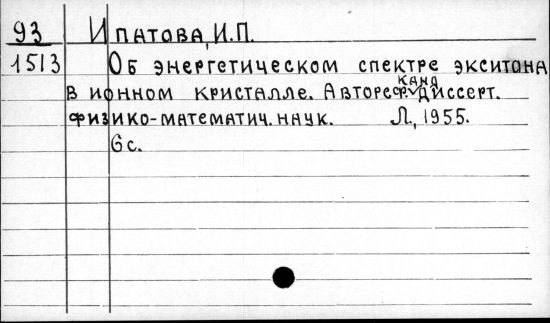 93 Ипатова, И.П.
1513 Об энергетическом спектре экситона
в ионном кристалле. Автореф. канд. диссерт.
физико-математич. наук. Л., 1955.
6 с.